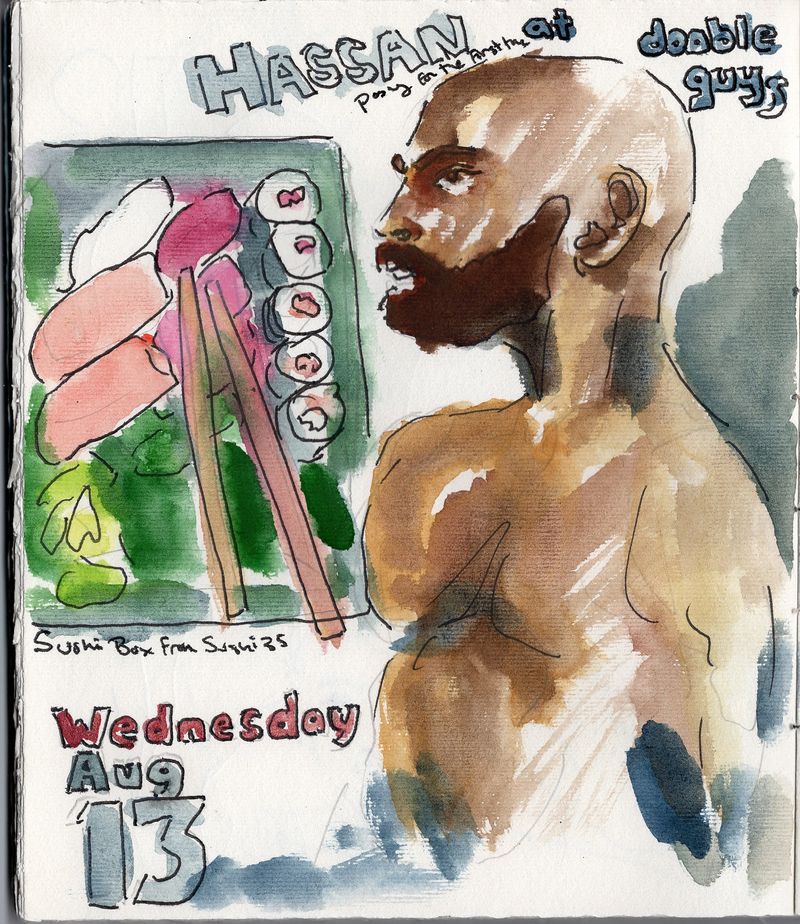 HASSAN at
Posing for the first time
dooble
guys
Sushi Box from Sushi 35
Wednesday
Aug
13